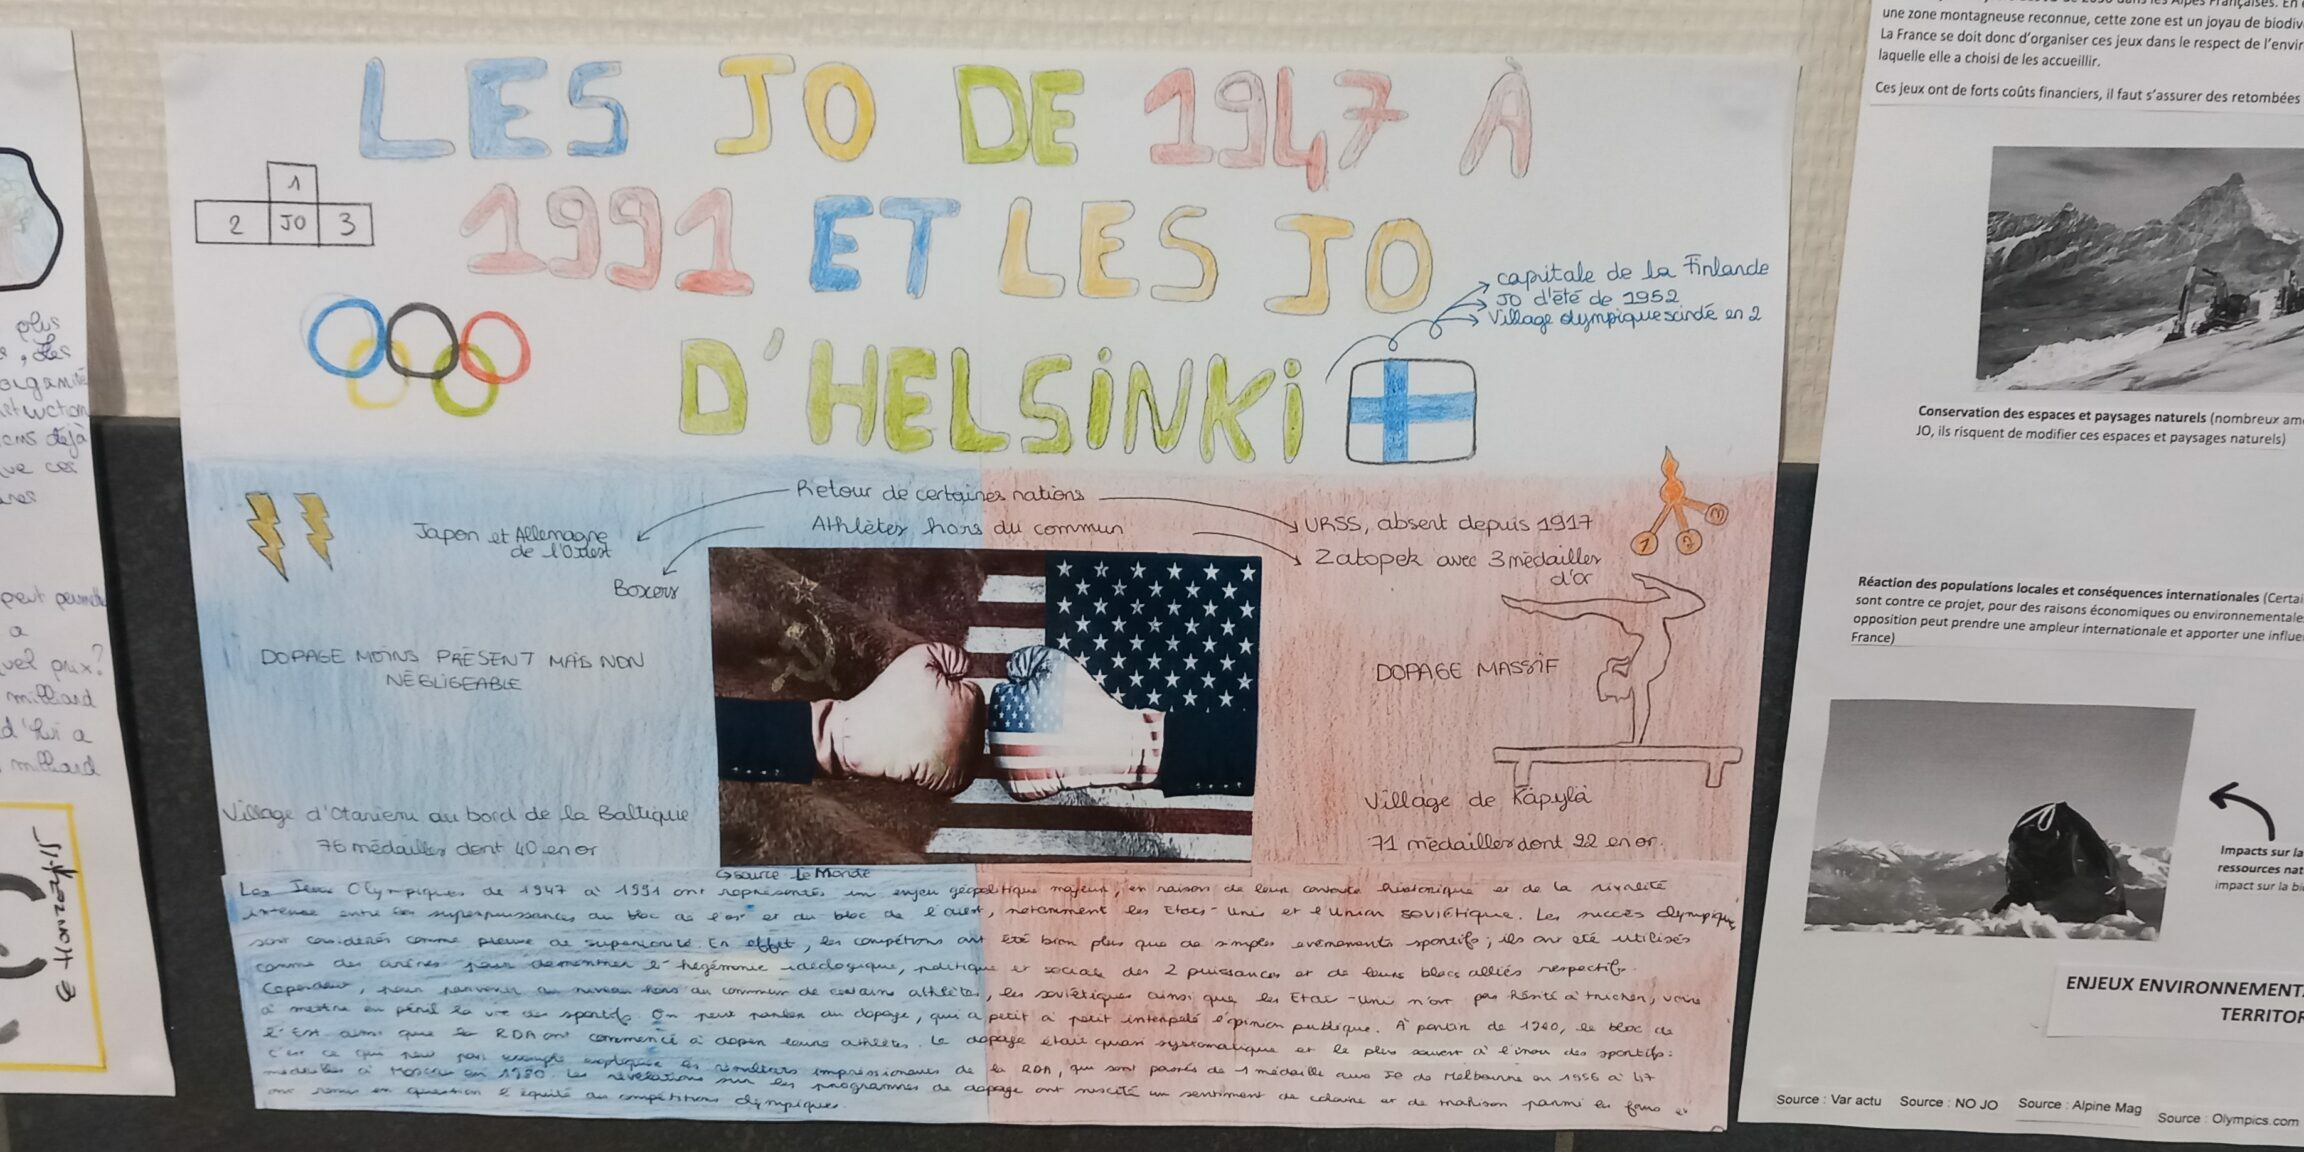 LES JO DE 1947 À
1991 ET LES JO
D'HELSINKI
1
2 JO 3
capitale de la Finlande
JO d'été de 1952
Village olympique scindé en 2
Retour de certaines nations
Athlètes hors du commun
Japon et Allemagne
de l'Ouest
Boxers
URSS, absent depuis 1917
Zatopek avec 3 médailles
d'or
1 2 3
DOPAGE MOINS PRÉSENT MAIS NON
NÉGLIGEABLE
DOPAGE MASSIF
Village d'Otaniemi au bord de la Baltique
76 médailles dont 40 en or
Village de Käpylä
71 médailles dont 22 en or.
source Le Monde
Les Jeux Olympiques de 1947 à 1991 ont représentés un enjeu géopolitique majeur, en raison de leur contexte historique et de la rivalité
intense entre les superpuissances du bloc de l'est et du bloc de l'ouest, notamment les Etats-Unis et l'Union soviétique. Les succès olympiques
sont considérés comme preuve de superiorité. En effet, les compétions ont été bien plus que de simples evénements sportifs; ils ont été utilisés
comme des arènes pour démontrer l'hégémonie idéologique, politique et sociale des 2 puissances et de leurs blocs alliés respectifs.
Cependant, pour parvenir au niveau hors du commun de certains athlètes, les soviétiques ainsi que les Etat-uni n'ont pas hésité à tricher, voire
à mettre en péril la vie des sportifs. On peut parler du dopage, qui a petit à petit interpelé l'opinion publique. À partir de le bloc de
l'Est ainsi que la RDA ont commencé à doper leurs athlètes. Le dopage était quasi systématique et le plus souvent à l'insu des sportifs:
c'est ce qui peut par exemple expliquer les résultats impressionants de la RDA, qui sont passés de 1 médaille aux JO de Melbourne en 1956 à 47
médailles à Moscou en 1980. Les révélations sur les programmes de dopage ont suscité un sentiment de colère et de trahison parmi les fans et
ont remis en question l'équité des compétitions olympiques.
plus
organis
déjà
ces
peut
a
prix?
milliard
d'hui a
milliard
une zone montagneuse reconnue, cette zone est un joyau de biodiv
La France se doit donc d'organiser ces jeux dans le respect de l'envir
laquelle elle a choisi de les accueillir.
Ces jeux ont de forts coûts financiers, il faut s'assurer des retombées
Conservation des espaces et paysages naturels (nombreux am
JO, ils risquent de modifier ces espaces et paysages naturels)
Réaction des populations locales et conséquences internationales (Certai
sont contre ce projet, pour des raisons économiques ou environnementales
opposition peut prendre une ampleur internationale et apporter une influe
France)
Impacts sur la
ressources nat
impact sur la bi
ENJEUX ENVIRONNEMENT
TERRITOR
Source : Var actu Source : NO JO Source : Alpine Mag Source : Olympics.com